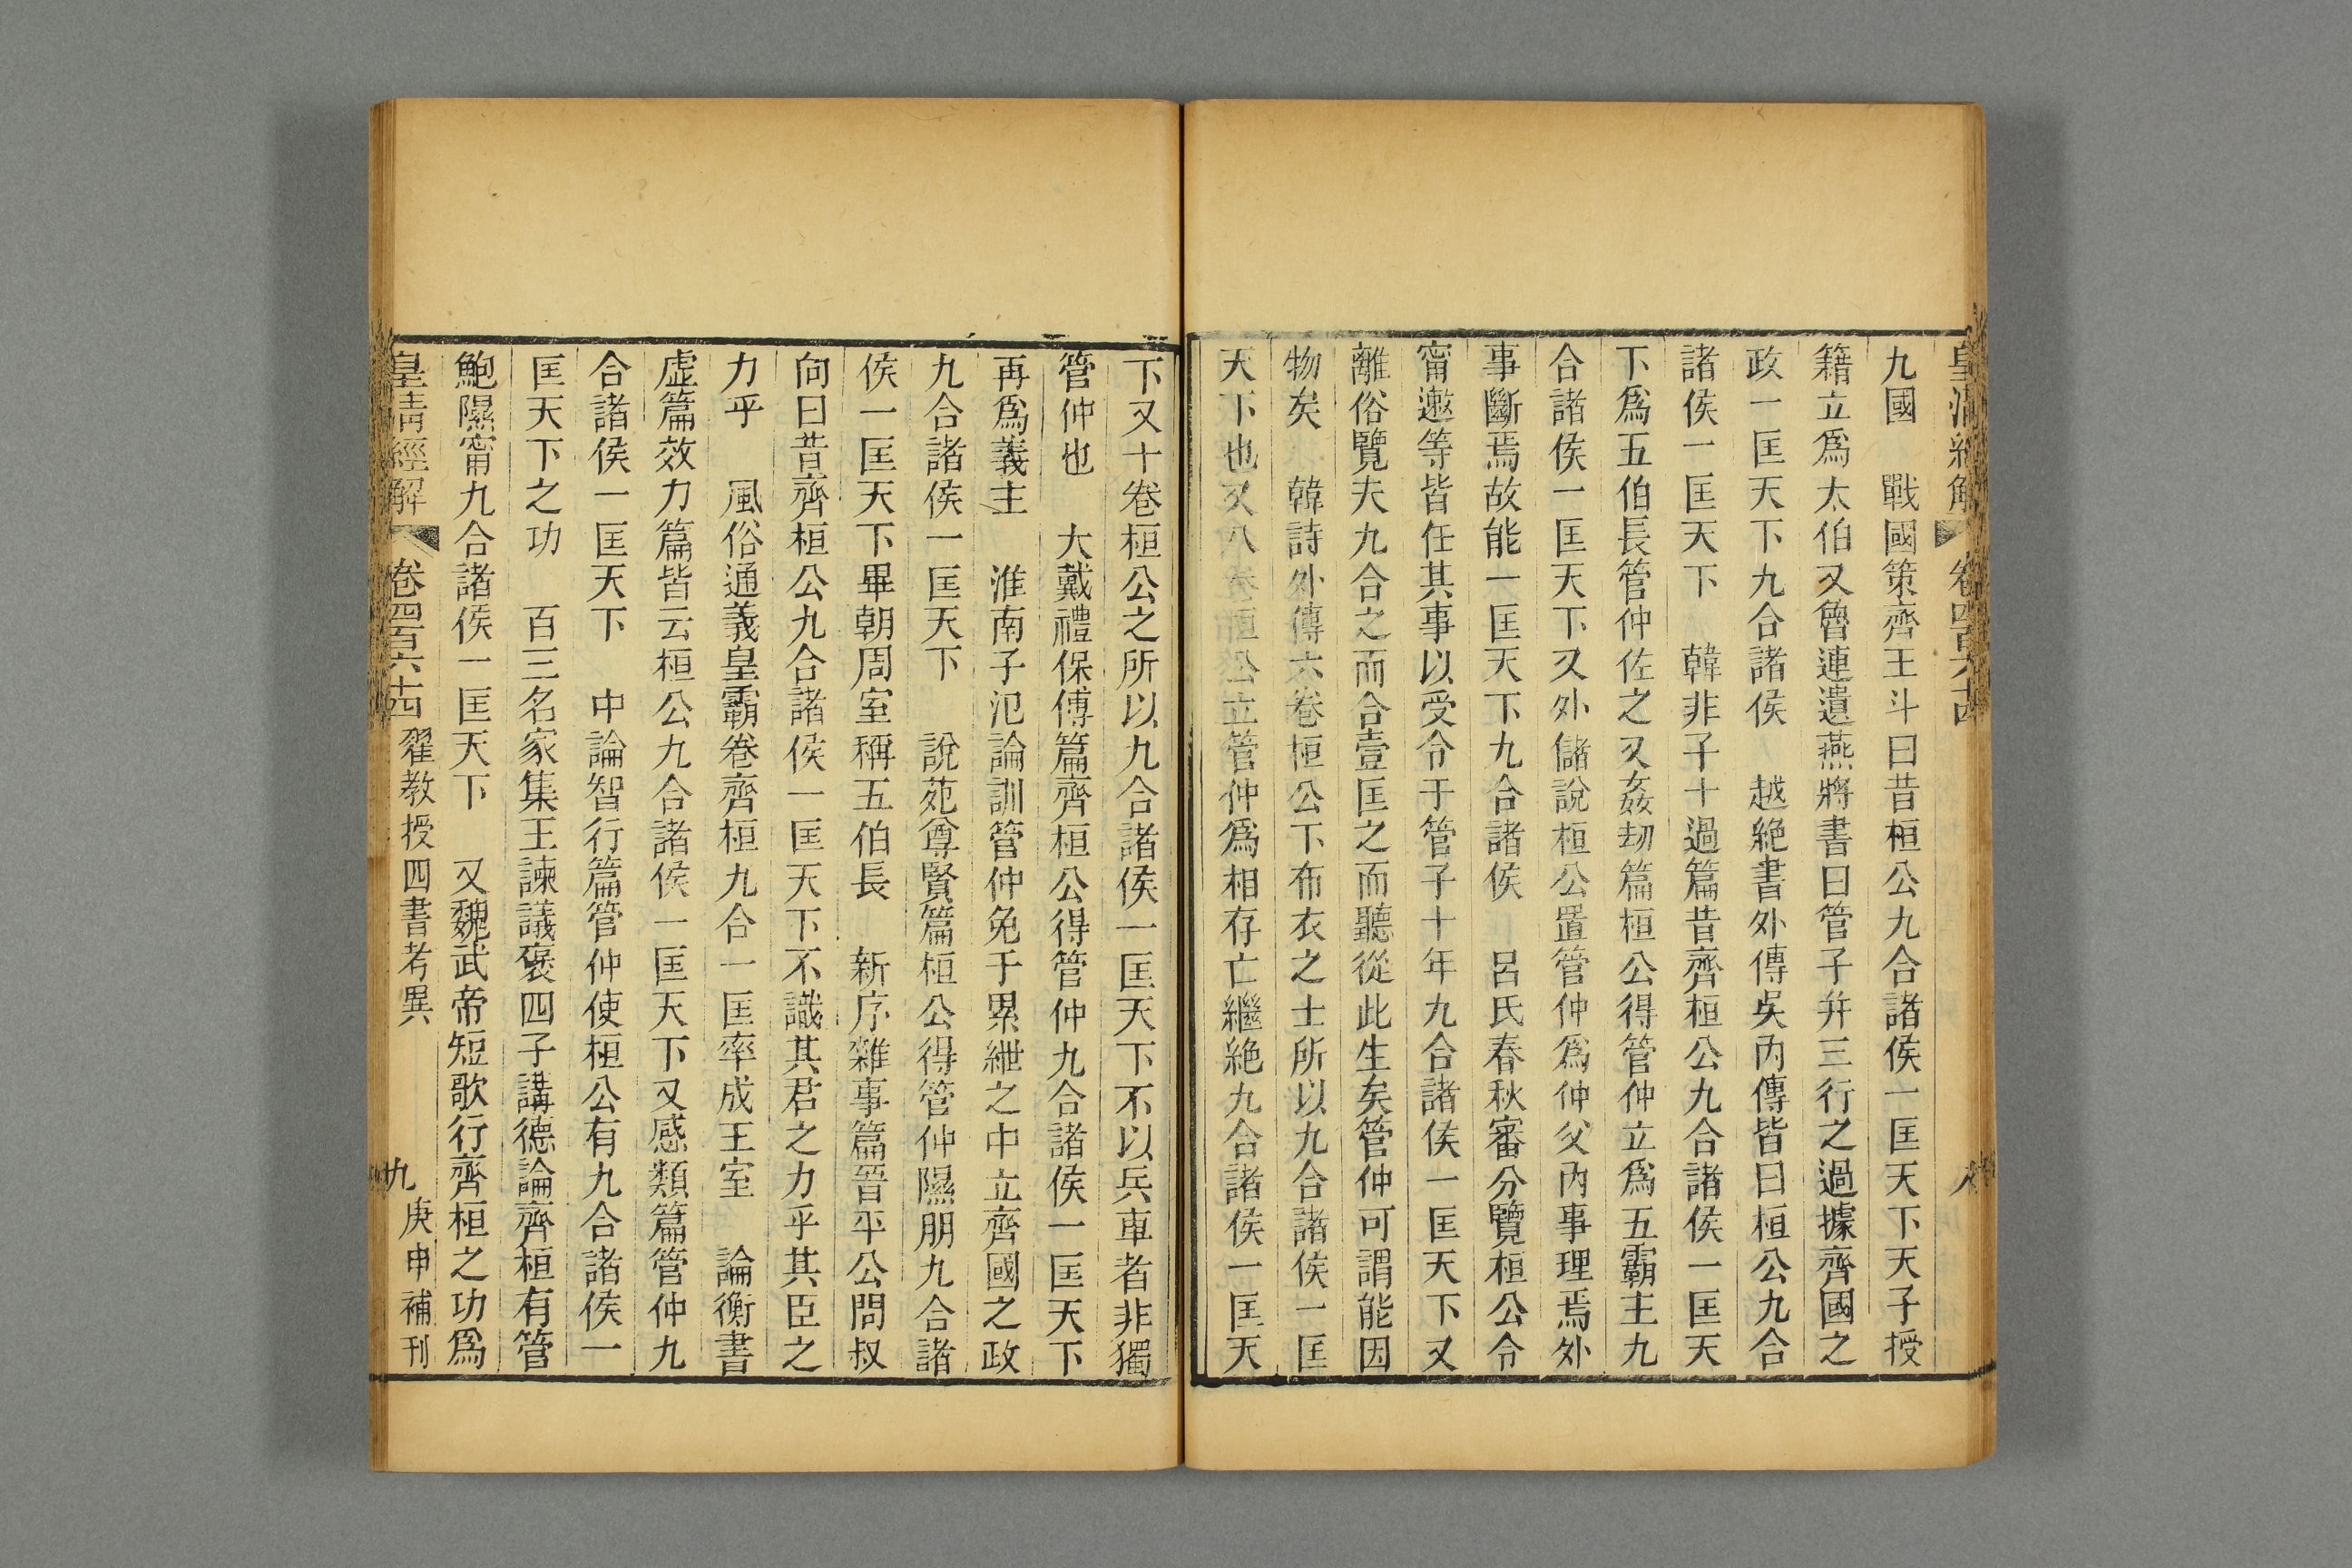 皇清經解 卷四百六十四 八
九國　戰國策齊王斗曰昔桓公九合諸侯一匡天下天子授
籍立爲太伯又魯連遺燕將書曰管子幷三行之過據齊國之
政一匡天下九合諸侯　越絶書外傳吳內傳皆曰桓公九合
諸侯一匡天下　韓非子十過篇昔齊桓公九合諸侯一匡天
下爲五伯長管仲佐之又姦劫篇桓公得管仲立爲五霸主九
合諸侯一匡天下又外儲說桓公置管仲爲仲父內事理焉外
事斷焉故能一匡天下九合諸侯　呂氏春秋審分覽桓公令
甯遫等皆任其事以受令于管子十年九合諸侯一匡天下又
離俗覽夫九合之而合壹匡之而聽從此生矣管仲可謂能因
物矣　韓詩外傳六卷桓公下布衣之士所以九合諸侯一匡
天下也又八卷桓公立管仲爲相存亡繼絶九合諸侯一匡天
下又十卷桓公之所以九合諸侯一匡天下不以兵車者非獨
管仲也　大戴禮保傅篇齊桓公得管仲九合諸侯一匡天下
再爲義主　淮南子氾論訓管仲免于累紲之中立齊國之政
九合諸侯一匡天下　說苑尊賢篇桓公得管仲隰朋九合諸
侯一匡天下畢朝周室稱五伯長　新序雜事篇晉平公問叔
向曰昔齊桓公九合諸侯一匡天下不識其君之力乎其臣之
力乎　風俗通義皇霸卷齊桓九合一匡率成王室　論衡書
虛篇效力篇皆云桓公九合諸侯一匡天下又感類篇管仲九
合諸侯一匡天下　中論智行篇管仲使桓公有九合諸侯一
匡天下之功　百三名家集王諫議褒四子講德論齊桓有管
鮑隰甯九合諸侯一匡天下　又魏武帝短歌行齊桓之功爲
皇清經解 卷四百六十四 翟教授四書考異 九 庚申補刊